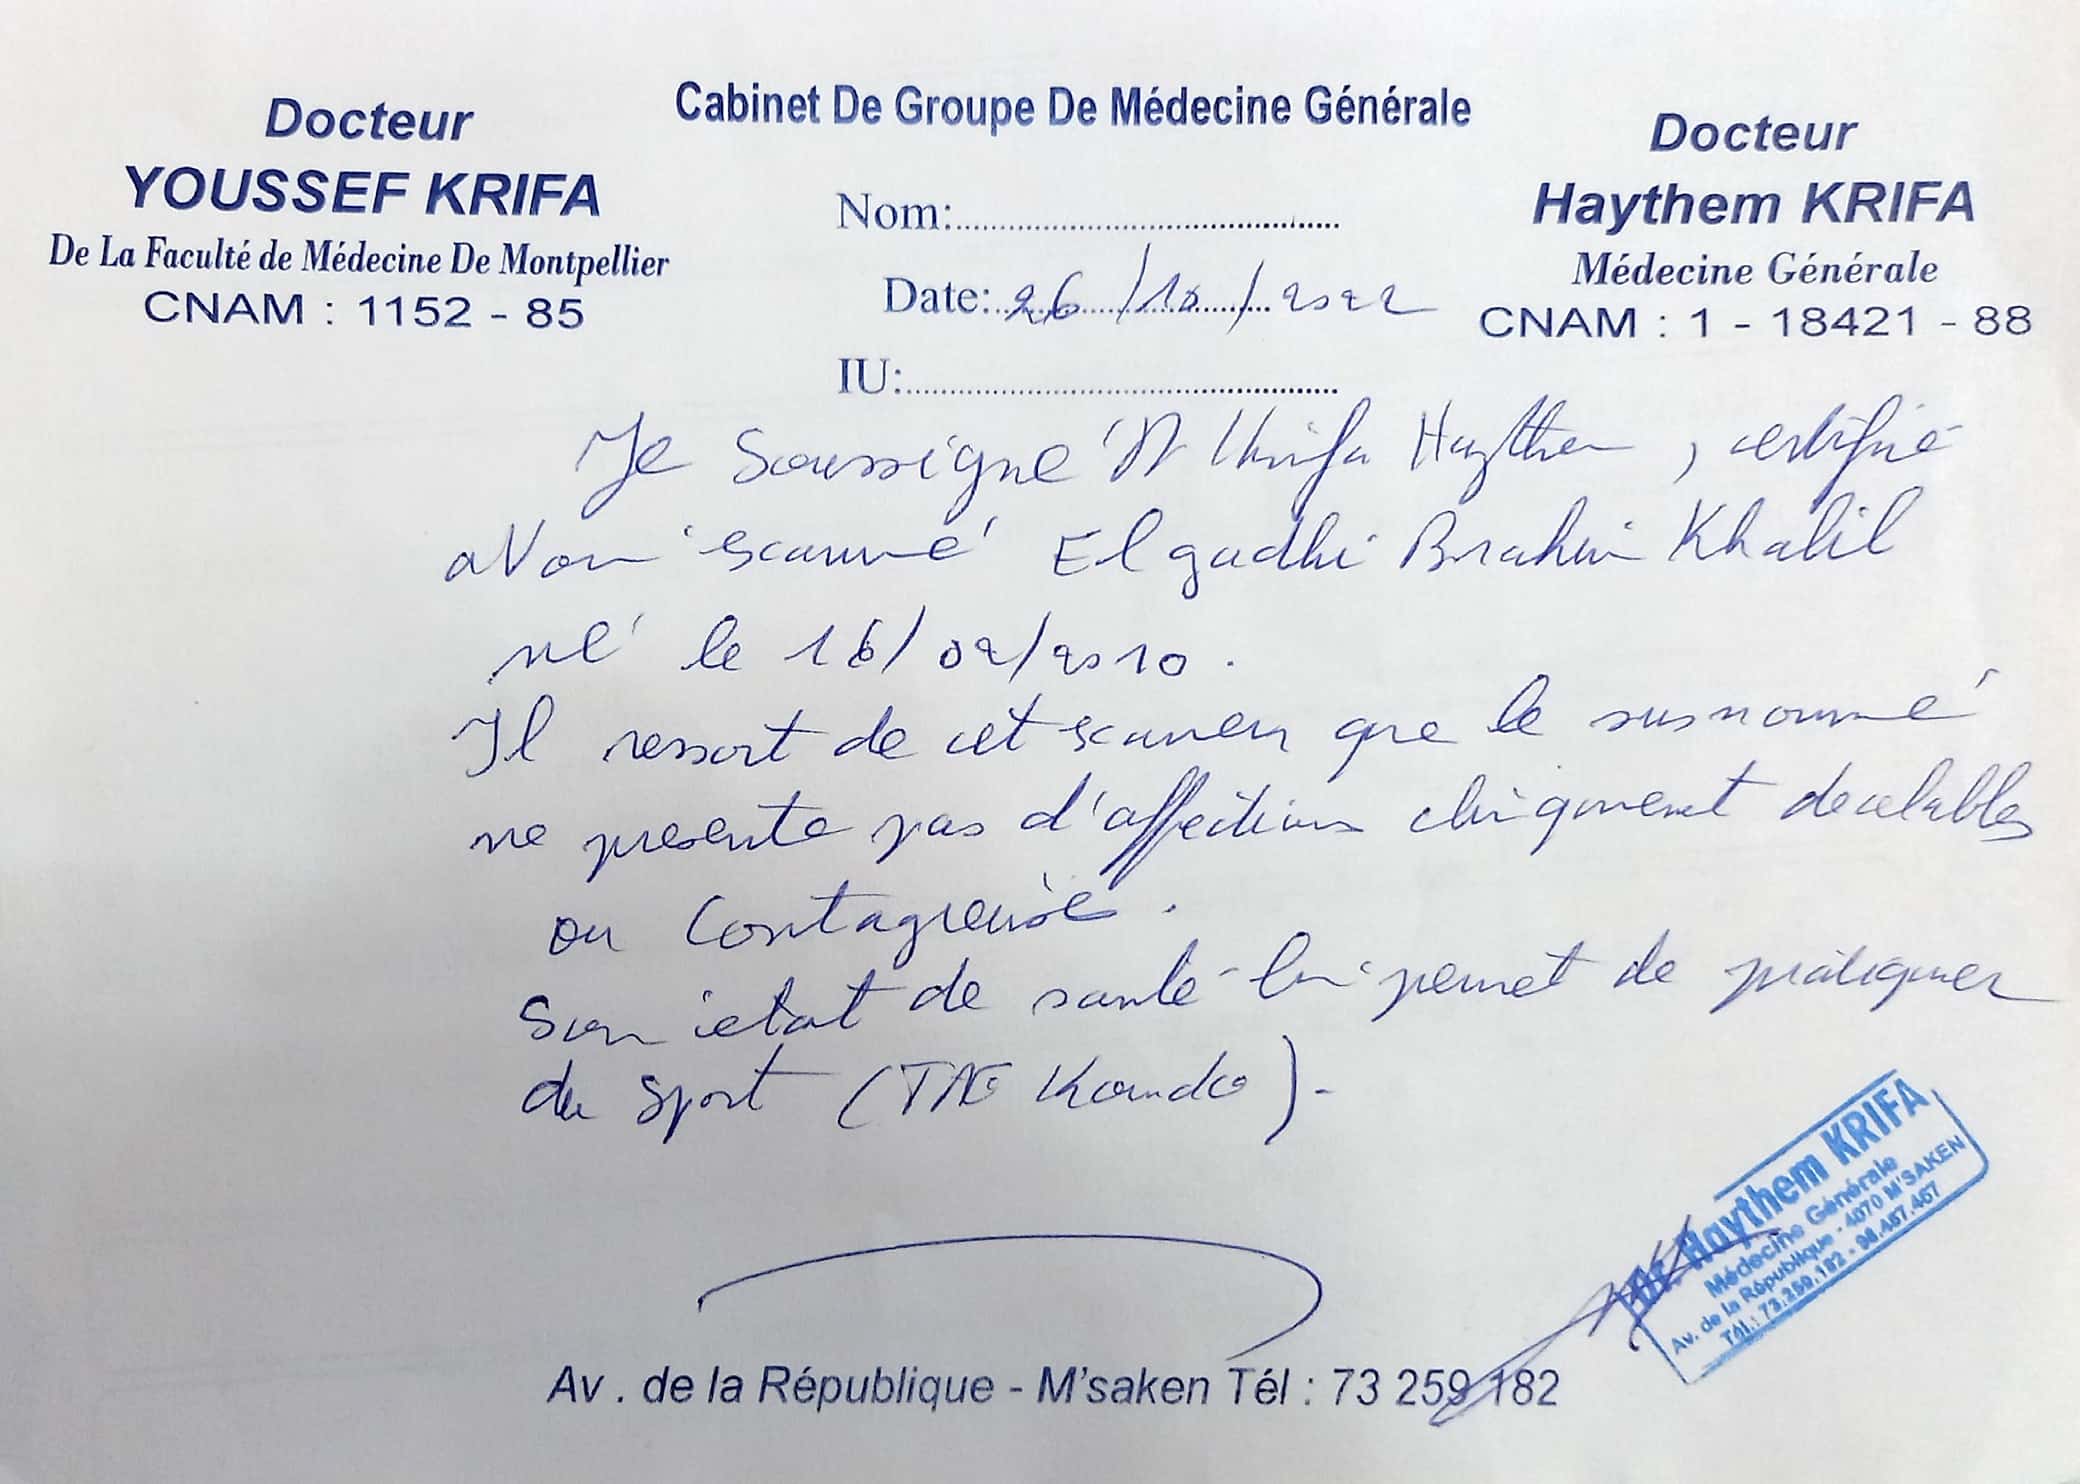 Cabinet De Groupe De Médecine Générale
Docteur
YOUSSEF KRIFA
De La Faculté de Médecine De Montpellier
CNAM : 1152 - 85
Nom:
Date: 26/10/2022
IU:
Docteur
Haythem KRIFA
Médecine Générale
CNAM : 1 - 18421 - 88
Je Soussigné Dr Krifa Haythem, certifie
avoir examiné El gadhi Brahim Khalil
né le 16/02/2010.
Il ressort de cet examen que le susnommé
ne presente pas d'affections cliniquement decelables
ou Contagieuse.
Son état de santé lui permet de pratiquer
du sport (TAE Kondo).-
Dr. Haythem KRIFA
Médecine Générale
Av. de la République - 4070 M'SAKEN
Tél.: 73.259.182 - 98.457.467
Av . de la République - M'saken Tél : 73 259 182